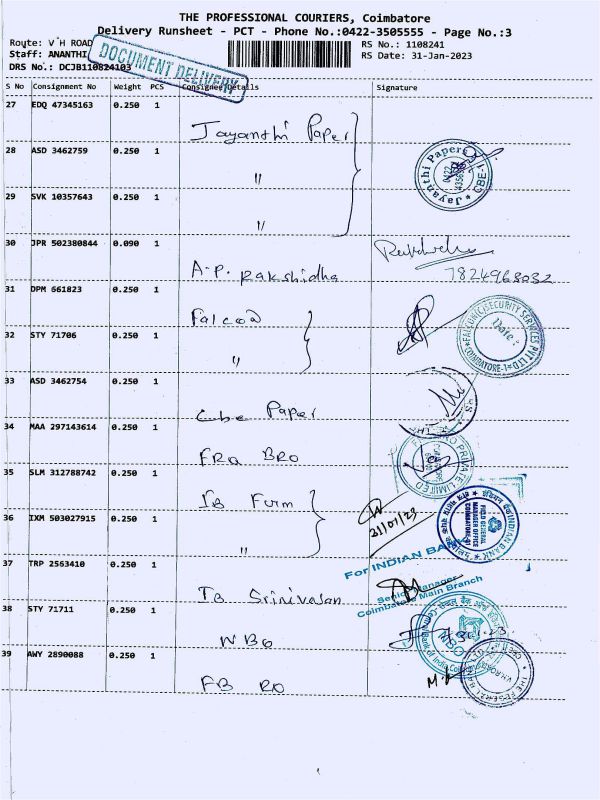 THE PROFESSIONAL COURIERS, Coimbatore
Delivery Runsheet - PCT - Phone No.:0422-3505555 - Page No.:3
Route: V H ROAD
RS No.: 1108241
Staff: ANANTHI
RS Date: 31-Jan-2023
DRS No.: DCJB110824103
DOCUMENT DELIVERY
S No Consignment No Weight PCS Consignee Details Signature
27 EDQ 47345163 0.250 1
Jayanthi Paper
28 ASD 3462759 0.250 1
"
Jayanthi Papers
CBE-1
29 SVK 10357643 0.250 1
"
30 JPR 502380844 0.090 1
A.P. Rakshidha
7824968032
31 DPM 661823 0.250 1
Falcon
FALCON(C)SECURITY SERVICES PVT LTD
Date:
COIMBATORE-1
32 STY 71706 0.250 1
"
33 ASD 3462754 0.250 1
Cbe Paper
34 MAA 297143614 0.250 1
FRO BRO
PRIVATE LIMITED
35 SLM 312788742 0.250 1
IB Furm
31/01/23
INDIAN BANK
FIELD GENERAL
MANAGER OFFICE
COIMBATORE
36 IXM 503027915 0.250 1
"
For INDIAN BA
37 TRP 2563410 0.250 1
IB Srinivasan
Senior Manager
Coimbatore Main Branch
38 STY 71711 0.250 1
NBG
NBG
39 AWY 2890088 0.250 1
FB RO
THE FEDERAL BANK LTD
V.H.ROAD